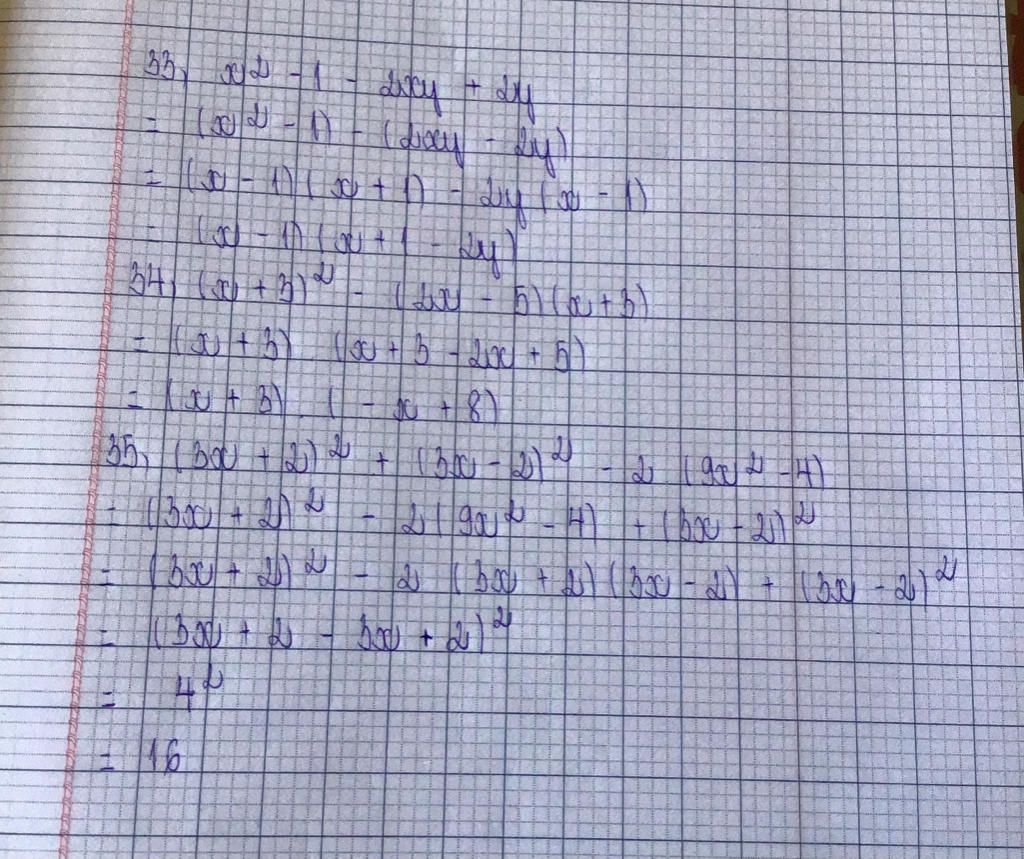 33, x² - 1 - 2xy + 2y
= (x² - 1) - (2xy - 2y)
= (x - 1)(x + 1) - 2y(x - 1)
= (x - 1)(x + 1 - 2y)
34, (x + 3)² - (2x - 5)(x + 3)
= (x + 3) (x + 3 - 2x + 5)
= (x + 3) . (-x + 8)
35, (3x + 2)² + (3x - 2)² - 2 (9x² - 4)
= (3x + 2)² - 2(9x² - 4) + (3x - 2)²
= (3x + 2)² - 2 (3x + 2)(3x - 2) + (3x - 2)²
= (3x + 2 - 3x + 2)²
= 4²
= 16